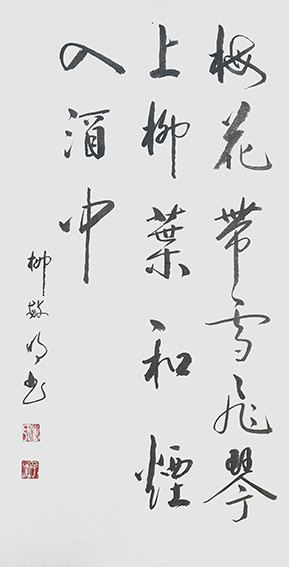 梅花帶雪飛琴
上柳葉和煙
入酒中
柳敏明书